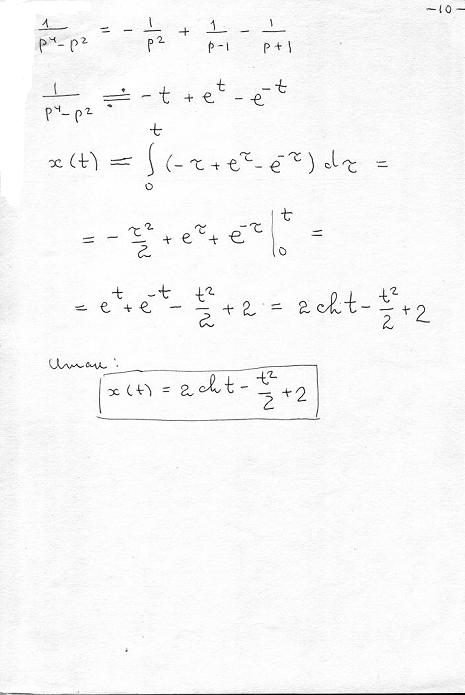 -10-
1/(p⁴-p²) = - 1/p² + 1/(p-1) - 1/(p+1)
1/(p⁴-p²) ≓ -t + eᵗ - e⁻ᵗ
x(t) = ∫₀ᵗ (-τ + e^τ - e^-τ) dτ =
= - τ²/2 + e^τ + e^-τ |₀ᵗ =
= eᵗ + e⁻ᵗ - t²/2 + 2 = 2 ch t - t²/2 + 2
Итак:
x(t) = 2 ch t - t²/2 + 2